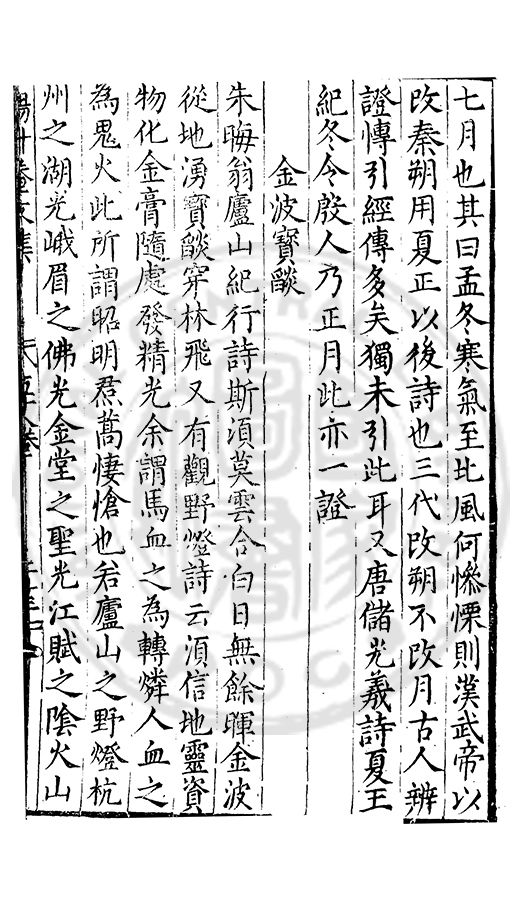 七月也其曰孟冬寒氣至北風何慘慄則漢武帝以
改秦朔用夏正以後詩也三代改朔不改月古人辨
證愽引經傳多矣獨未引此耳又唐儲光羲詩夏王
紀冬令殷人乃正月此亦一證
金波寳𦦨
朱晦翁廬山紀行詩斯湏莫雲合白日無餘暉金波
從地湧寳𦦨穿林飛又有觀野燈詩云湏信地靈資
物化金膏隨處發精光余謂馬血之為轉燐人血之
為鬼火此所謂昭明焄蒿悽愴也若廬山之野燈杭
州之湖光峨眉之佛光金堂之聖光江賦之陰火山